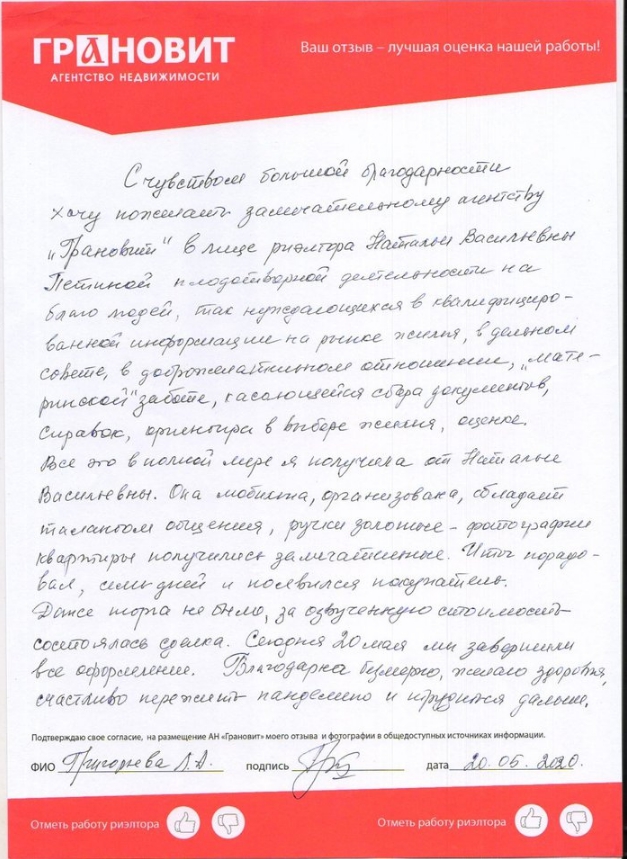 ГРАНОВИТ
АГЕНТСТВО НЕДВИЖИМОСТИ
Ваш отзыв – лучшая оценка нашей работы!
С чувством большой благодарности
хочу пожелать замечательному агентству
„Грановит" в лице риэлтора Натальи Васильевны
Петиной плодотворной деятельности на
благо людей, так нуждающихся в квалифициро-
ванной информации на рынке жилья, в дельном
совете, в доброжелательном отношении, „мате-
ринской" заботе, касающейся сбора документов,
справок, ориентира в выборе жилья, оценке.
Все это в полной мере я получила от Натальи
Васильевны. Она мобильна, организована, обладает
талантом общения, ручки золотые - фотографии
квартиры получились замечательные. Итог порадо-
вал, семь дней и появился покупатель.
Даже торга не было, за озвученную стоимость
состоялась сделка. Сегодня 20 мая мы завершили
все оформление. Благодарна безмерно, желаю здоровья,
счастливо пережить пандемию и трудиться дальше.
Подтверждаю свое согласие, на размещение АН «Грановит» моего отзыва и фотографии в общедоступных источниках информации.
ФИО Григорьева Л.А. подпись дата 20.05.2020.
Отметь работу риэлтора
Отметь работу риэлтора